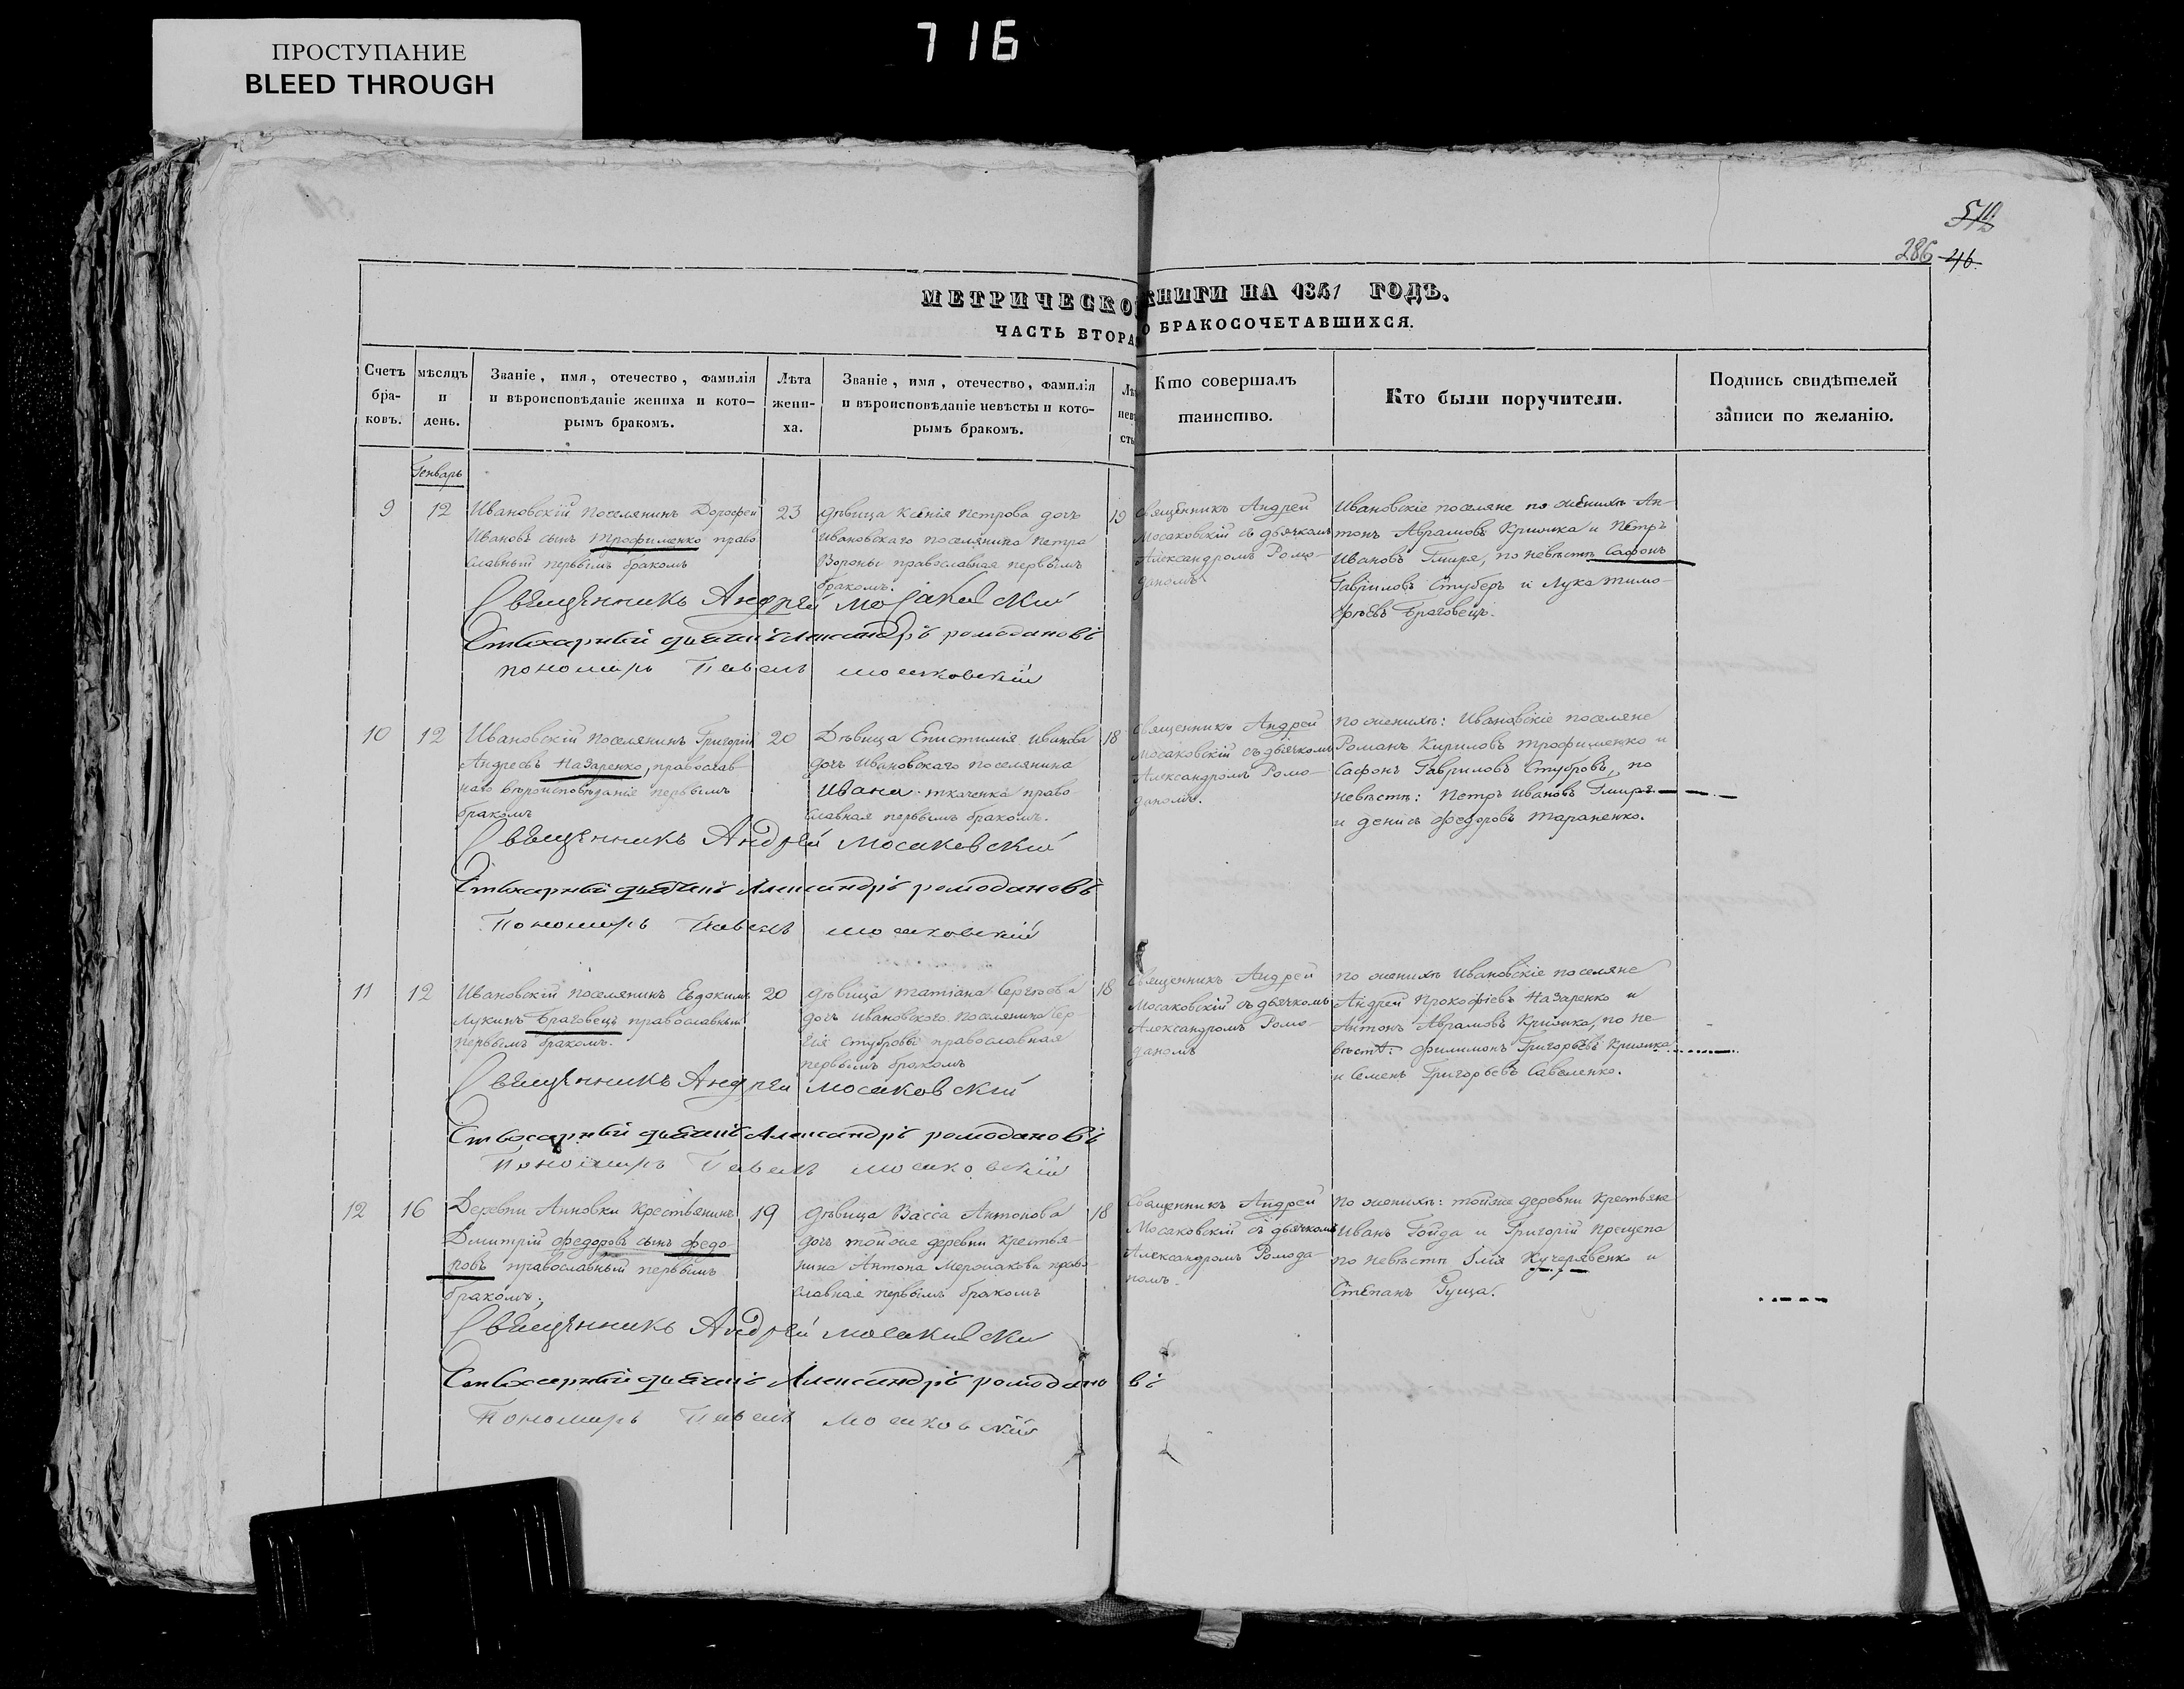 ПРОСТУПАНИЕ
BLEED THROUGH
716
512
286 46.
МЕТРИЧЕСКОЙ КНИГИ НА 1841 ГОДЪ.
ЧАСТЬ ВТОРАЯ О БРАКОСОЧЕТАВШИХСЯ.
Счетъ бра- ковъ.
мѣсяцъ и день.
Званіе, имя, отечество, фамилія
и вѣроисповѣданіе жениха и кото-
рымъ бракомъ.
Лѣта жени- ха.
Званіе, имя, отечество, фамилія
и вѣроисповѣданіе невѣсты и кото-
рымъ бракомъ.
Лѣ невѣ сты
Кто совершалъ
таинство.
Кто были поручители.
Подпись свидѣтелей
записи по желанію.
Генварь
9
12
Ивановскій поселянинъ Дорофей
Ивановъ сынъ Трофименко право
славный первымъ бракомъ
23
дѣвица Ксенія Петрова дочь
Ивановскаго поселянина Петра
Вороны православная первымъ
бракомъ.
19
Священникъ Андрей
Мосаковскій съ дьячкомъ
Александромъ Ромо-
даномъ
Ивановскіе поселяне по женихѣ Ан-
тонъ Аврамовъ Кришка и Петръ
Ивановъ Гмиря, по невѣстѣ Сафонъ
Гавриловъ Стубръ и Лука Тимо-
фѣевъ Браговецъ.
Священникъ Андрей Мосаковскій
Стихарный дьячекъ Александръ Ромодановъ
Пономарь Павелъ Мосаковскій
10
12
Ивановскій поселянинъ Григорій
Андреевъ Назаренко, православ-
наго вѣроисповѣданія первымъ
бракомъ
20
Дѣвица Епистимія Иванова
дочь Ивановскаго поселянина
Ивана Ткаченка право
славная первымъ бракомъ.
18
Священникъ Андрей
Мосаковскій съ дьячкомъ
Александромъ Ромо-
даномъ.
по женихѣ: Ивановскіе поселяне
Романъ Кириловъ Трофименко и
Сафонъ Гавриловъ Стубровъ, по
невѣстѣ: Петръ Ивановъ Гмиря
и Денисъ Федоровъ Тараненко.
Священникъ Андрей Мосаковскій
Стихарный дьячекъ Александръ Ромодановъ
Пономарь Павелъ Мосаковскій
11
12
Ивановскій поселянинъ Евдокимъ
Лукинъ Браговецъ православный
первымъ бракомъ.
20
дѣвица Татіана Сергѣева
дочь Ивановского поселянина Сер-
гія Стубровы православная
первымъ бракомъ
18
Священникъ Андрей
Мосаковскій съ дьячкомъ
Александромъ Ромо-
даномъ
по женихѣ Ивановскіе поселяне
Андрей Прокофіевъ Назаренко и
Антонъ Аврамовъ Кришка, по не-
вѣстѣ: Филимонъ Григорьевъ Кришка
и Семенъ Григорьевъ Савеленко.
Священникъ Андрей Мосаковскій
Стихарный дьячекъ Александръ Ромодановъ
Пономарь Павелъ Мосаковскій
12
16
Деревни Анновки Крестьянинъ
Дмитрій Федоровъ сынъ Федо-
ровъ православный первымъ
бракомъ.
19
дѣвица Васса Антонова
дочь тойже деревни крестья-
нина Антона право-
славная первымъ бракомъ
18
Священникъ Андрей
Мосаковскій съ дьячкомъ
Александромъ Ромода-
номъ.
по женихѣ: тойже деревни крестьяне
Иванъ Гойда и Григорій Прещепа
по невѣстѣ Илія Кучерявенко и
Степанъ Гуща.
Священникъ Андрей Мосаковскій
Стихарный дьячекъ Александръ Ромодановъ
Пономарь Павелъ Мосаковскій